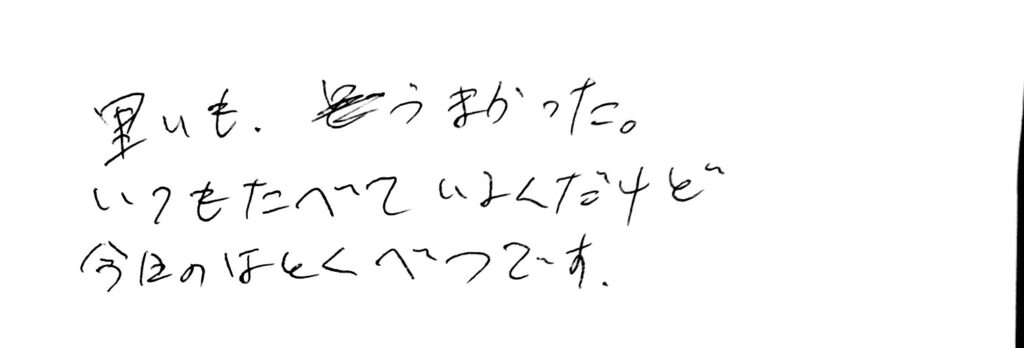 里いも、うまかった。
いつもたべているんだけど
今日のはとくべつです。